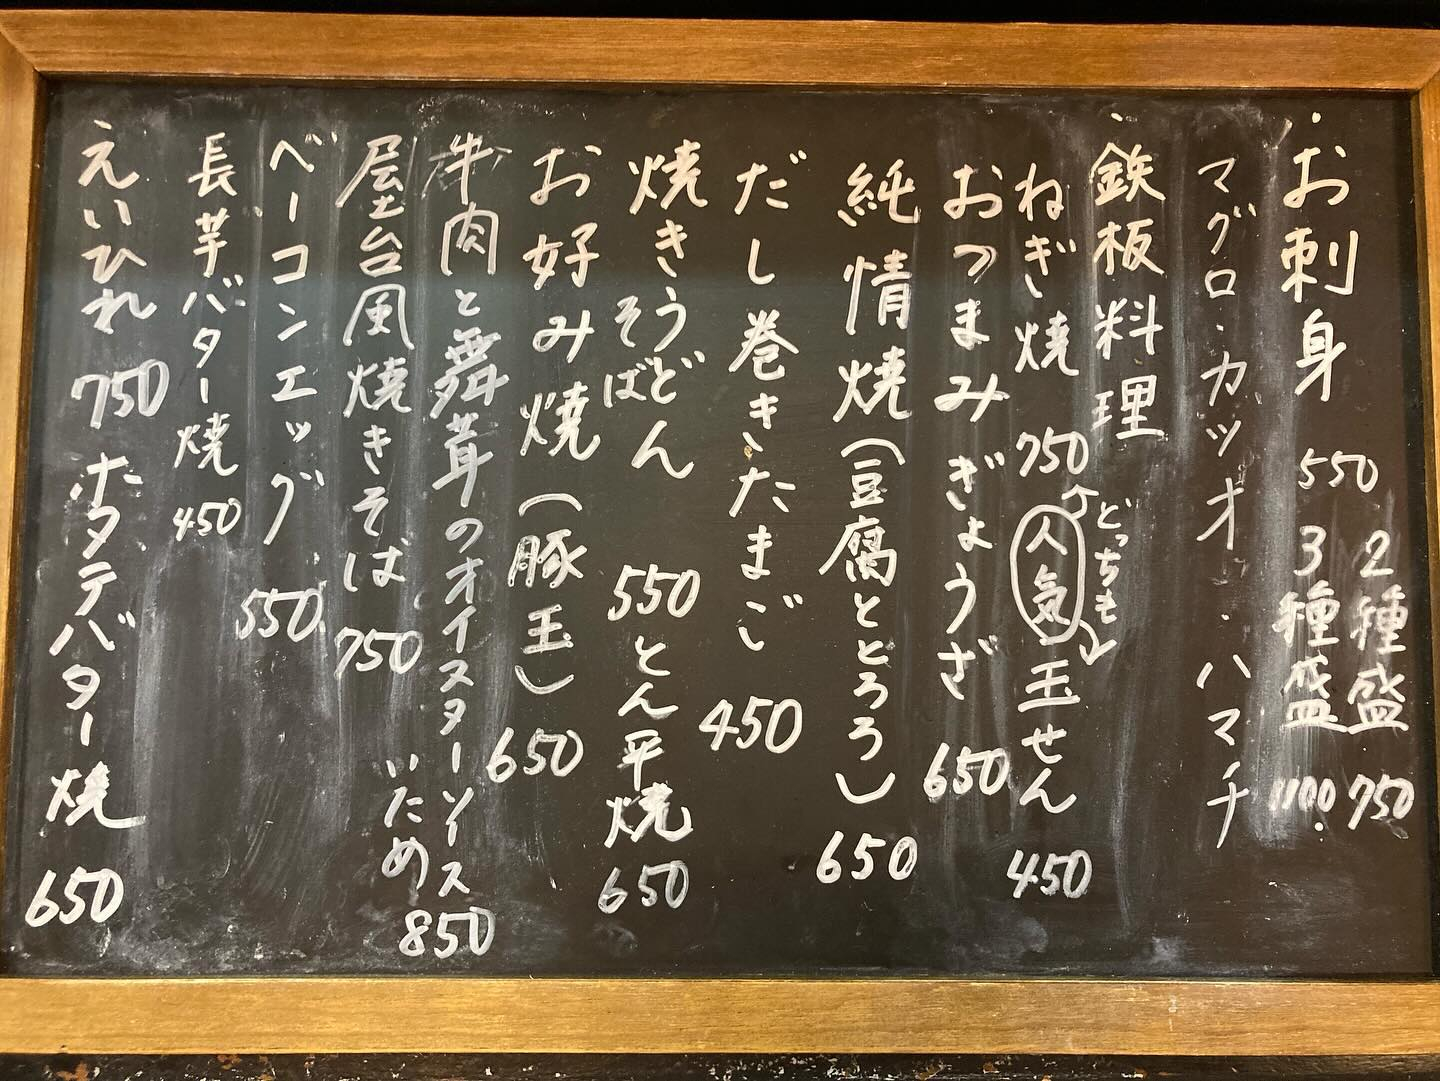 ・お刺身 550 2種盛 750
3種盛 1100.
マグロ・カツオ・ハマチ
・鉄板料理
ねぎ焼 750 人気 玉せん 450
どっちも
おつまみぎょうざ 650
純情焼(豆腐ととろろ) 650
だし巻きたまご 450
焼きうどん 550 とん平焼 650
そば
お好み焼(豚玉) 650
牛肉と舞茸のオイスターソース
いため 850
屋台風焼きそば 750
ベーコンエッグ 550
長芋バター焼 450
えいひれ 750 ホタテバター焼 650